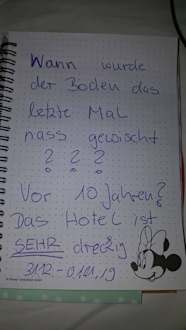 Wann wurde
der Boden das
letzte Mal
nass gewischt
? ? ?
Vor 10 Jahren?
Das Hotel ist
SEHR dreckig
31.12 - 01.01.19